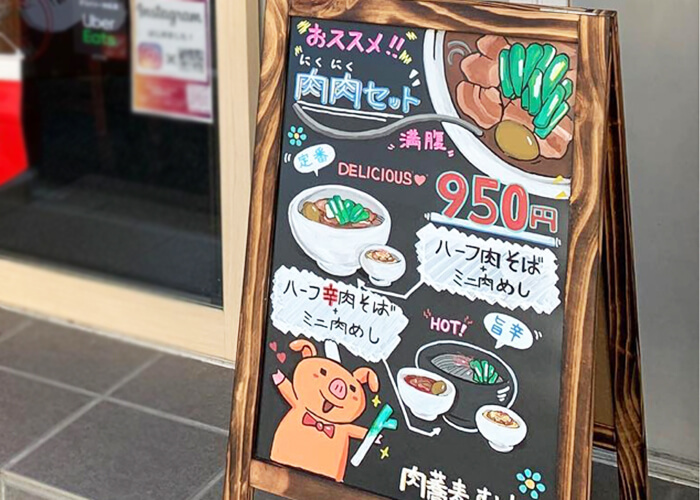 Uber
Eats
Instagram
おススメ!!
にくにく
肉肉セット
満腹
定番
DELICIOUS♥
950円
ハーフ肉そば
+
ミニ肉めし
ハーフ辛肉そば
+
ミニ肉めし
HOT!
旨辛
肉蕎麦